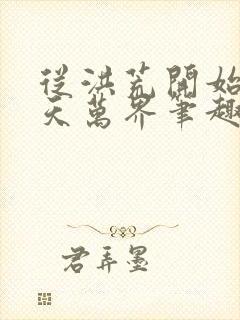 從洪荒開始
天萬界筆趣
君弄墨